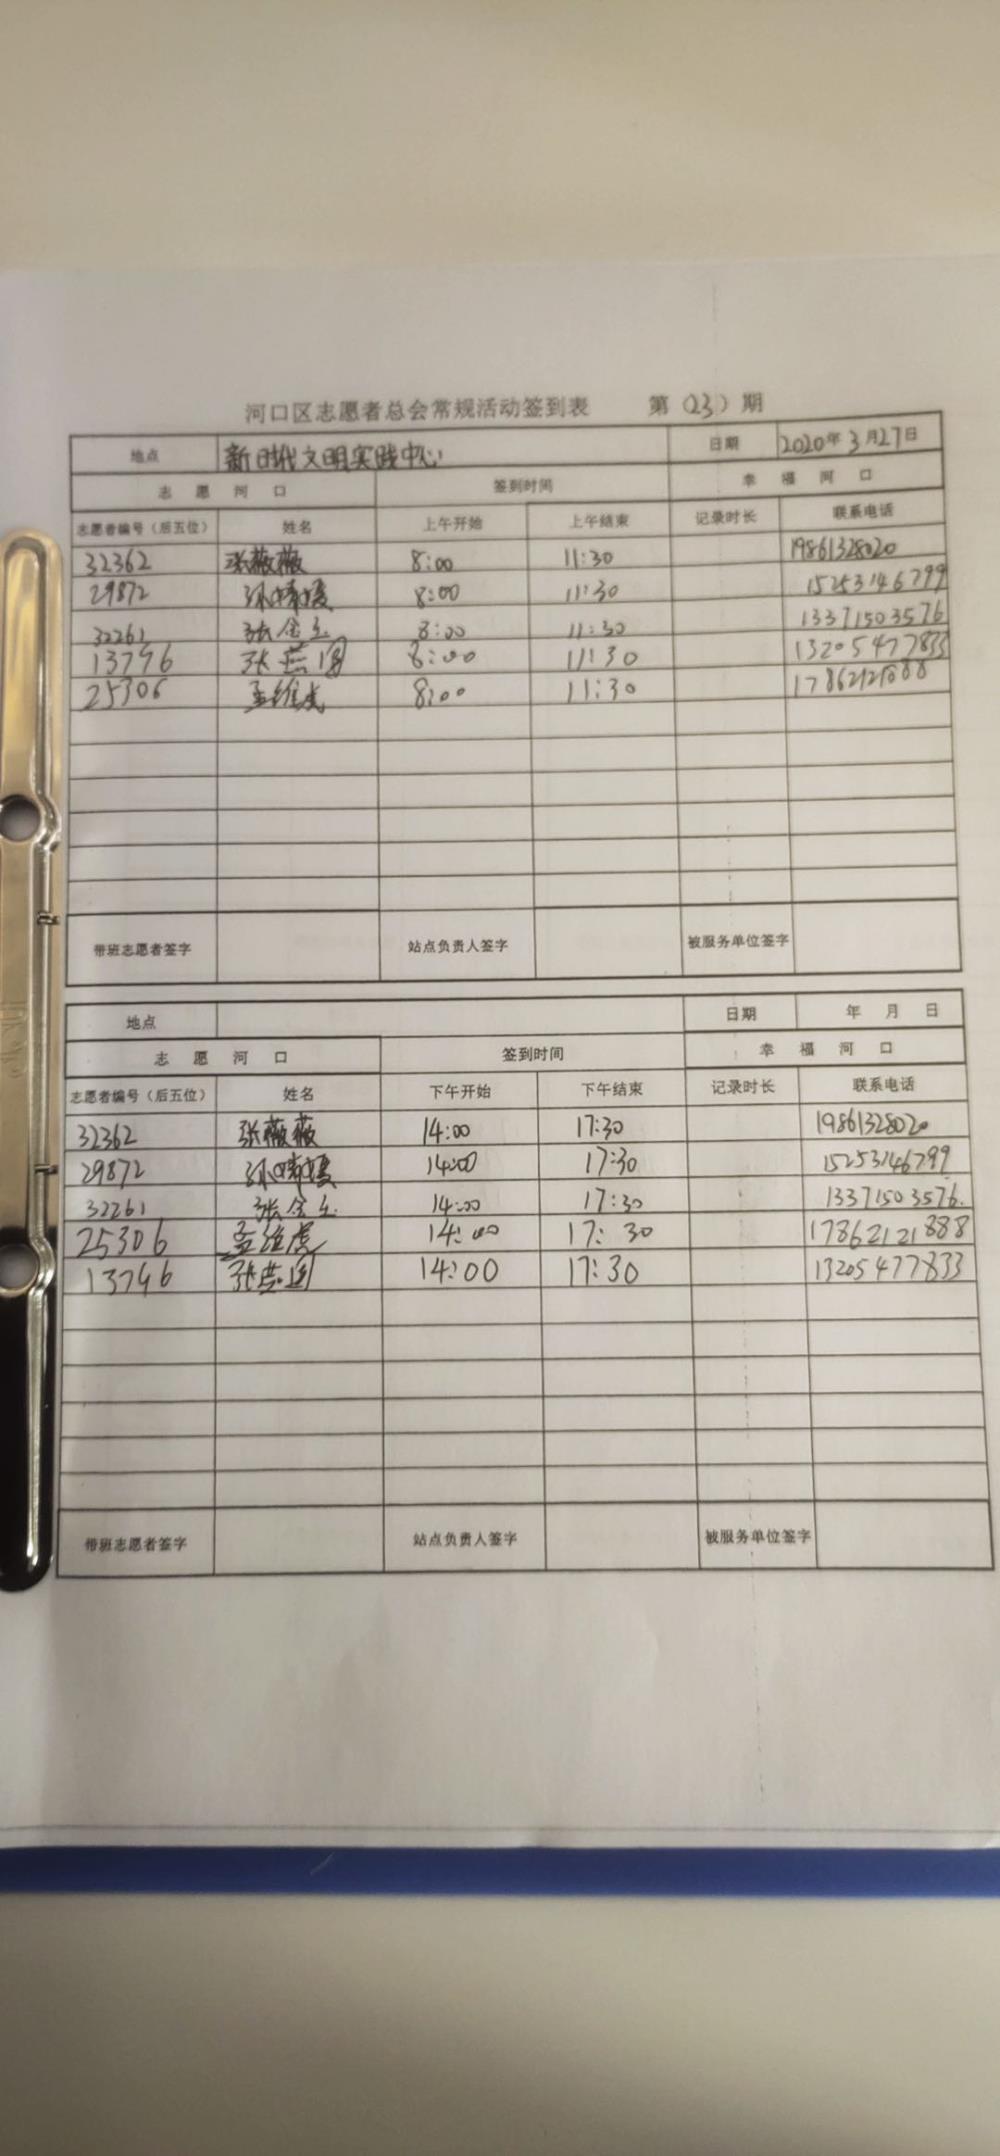 河口区志愿者总会常规活动签到表 第（23）期
地点 新时代文明实践中心 日期 2020年3月27日
志愿河口 签到时间 幸福河口
志愿者编号（后五位） 姓名 上午开始 上午结束 记录时长 联系电话
32362 张薇薇 8:00 11:30 19861328020
29872 孙 8:00 11:30 15253146799
32261 张金 8:00 11:30 13371503576
13796 张燕 8:00 11:30 13205477833
25306 孟维虎 8:00 11:30 17862121888
带班志愿者签字 站点负责人签字 被服务单位签字
地点 日期 年 月 日
志愿河口 签到时间 幸福河口
志愿者编号（后五位） 姓名 下午开始 下午结束 记录时长 联系电话
32362 张薇薇 14:00 17:30 19861328020
29872 孙 14:00 17:30 15253146799
32261 张金 14:00 17:30 13371503576.
25306 孟维虎 14:00 17:30 17862121888
13796 张燕 14:00 17:30 13205477833
带班志愿者签字 站点负责人签字 被服务单位签字